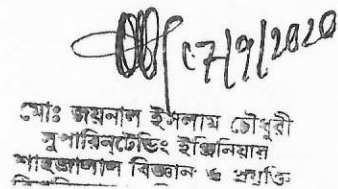 07/9/2020
মোঃ জয়নাল ইসলাম চৌধুরী
সুপারিনটেন্ডিং ইঞ্জিনিয়ার
শাহজালাল বিজ্ঞান ও প্রযুক্তি